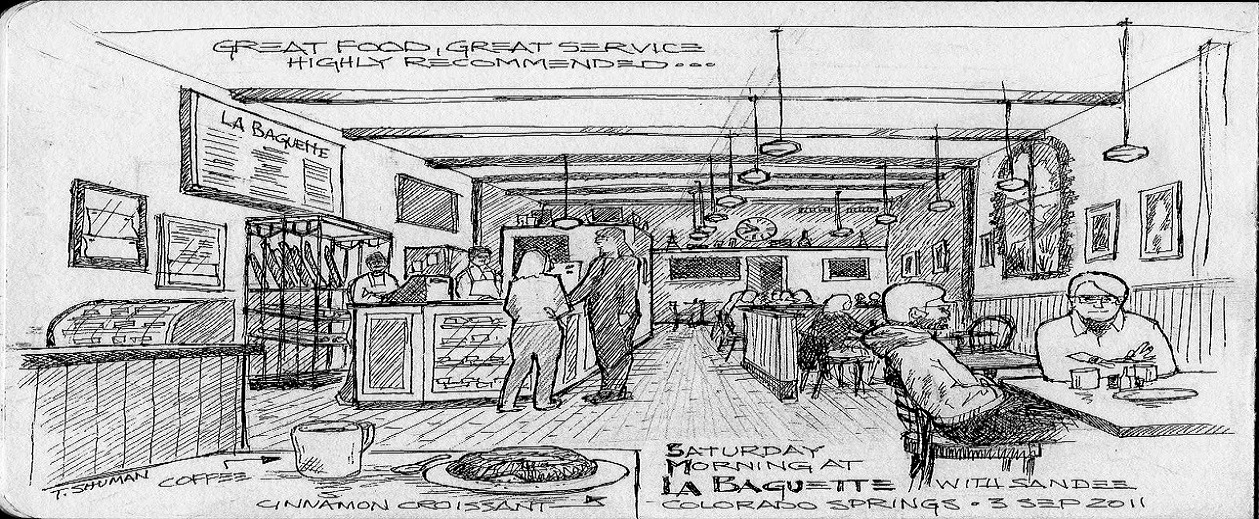 GREAT FOOD, GREAT SERVICE
HIGHLY RECOMMENDED...
LA BAGUETTE
T. SHUMAN
COFFEE
CINNAMON CROISSANT
SATURDAY
MORNING AT
LA BAGUETTE WITH SANDEE
COLORADO SPRINGS • 3 SEP 2011